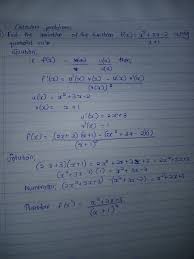 Calculus problems
Find the derivative of the function f(x) = x² + 3x - 2 using
x + 1
quotient rule
Solution;
If f(x) = u(x), then
v(x)
f'(x) = u'(x) v(x) - u(x) v'(x)
(v(x))²
u(x) = x² + 3x - 2
v(x) = x + 1
u'(x) = 2x + 3
v'(x) = 1
f'(x) = (2x + 3)(x + 1) - (x² + 3x - 2)(1)
(x + 1)²
Solution;
(2x + 3)(x + 1) = 2x² + 2x + 3x + 3 = 2x² + 5x + 3
(x² + 3x - 2)(1) = x² + 3x - 2
Numerator: (2x² + 5x + 3) - (x² + 3x - 2) = x² + 2x + 5
Therefore f'(x) = x² + 2x + 5
(x + 1)²